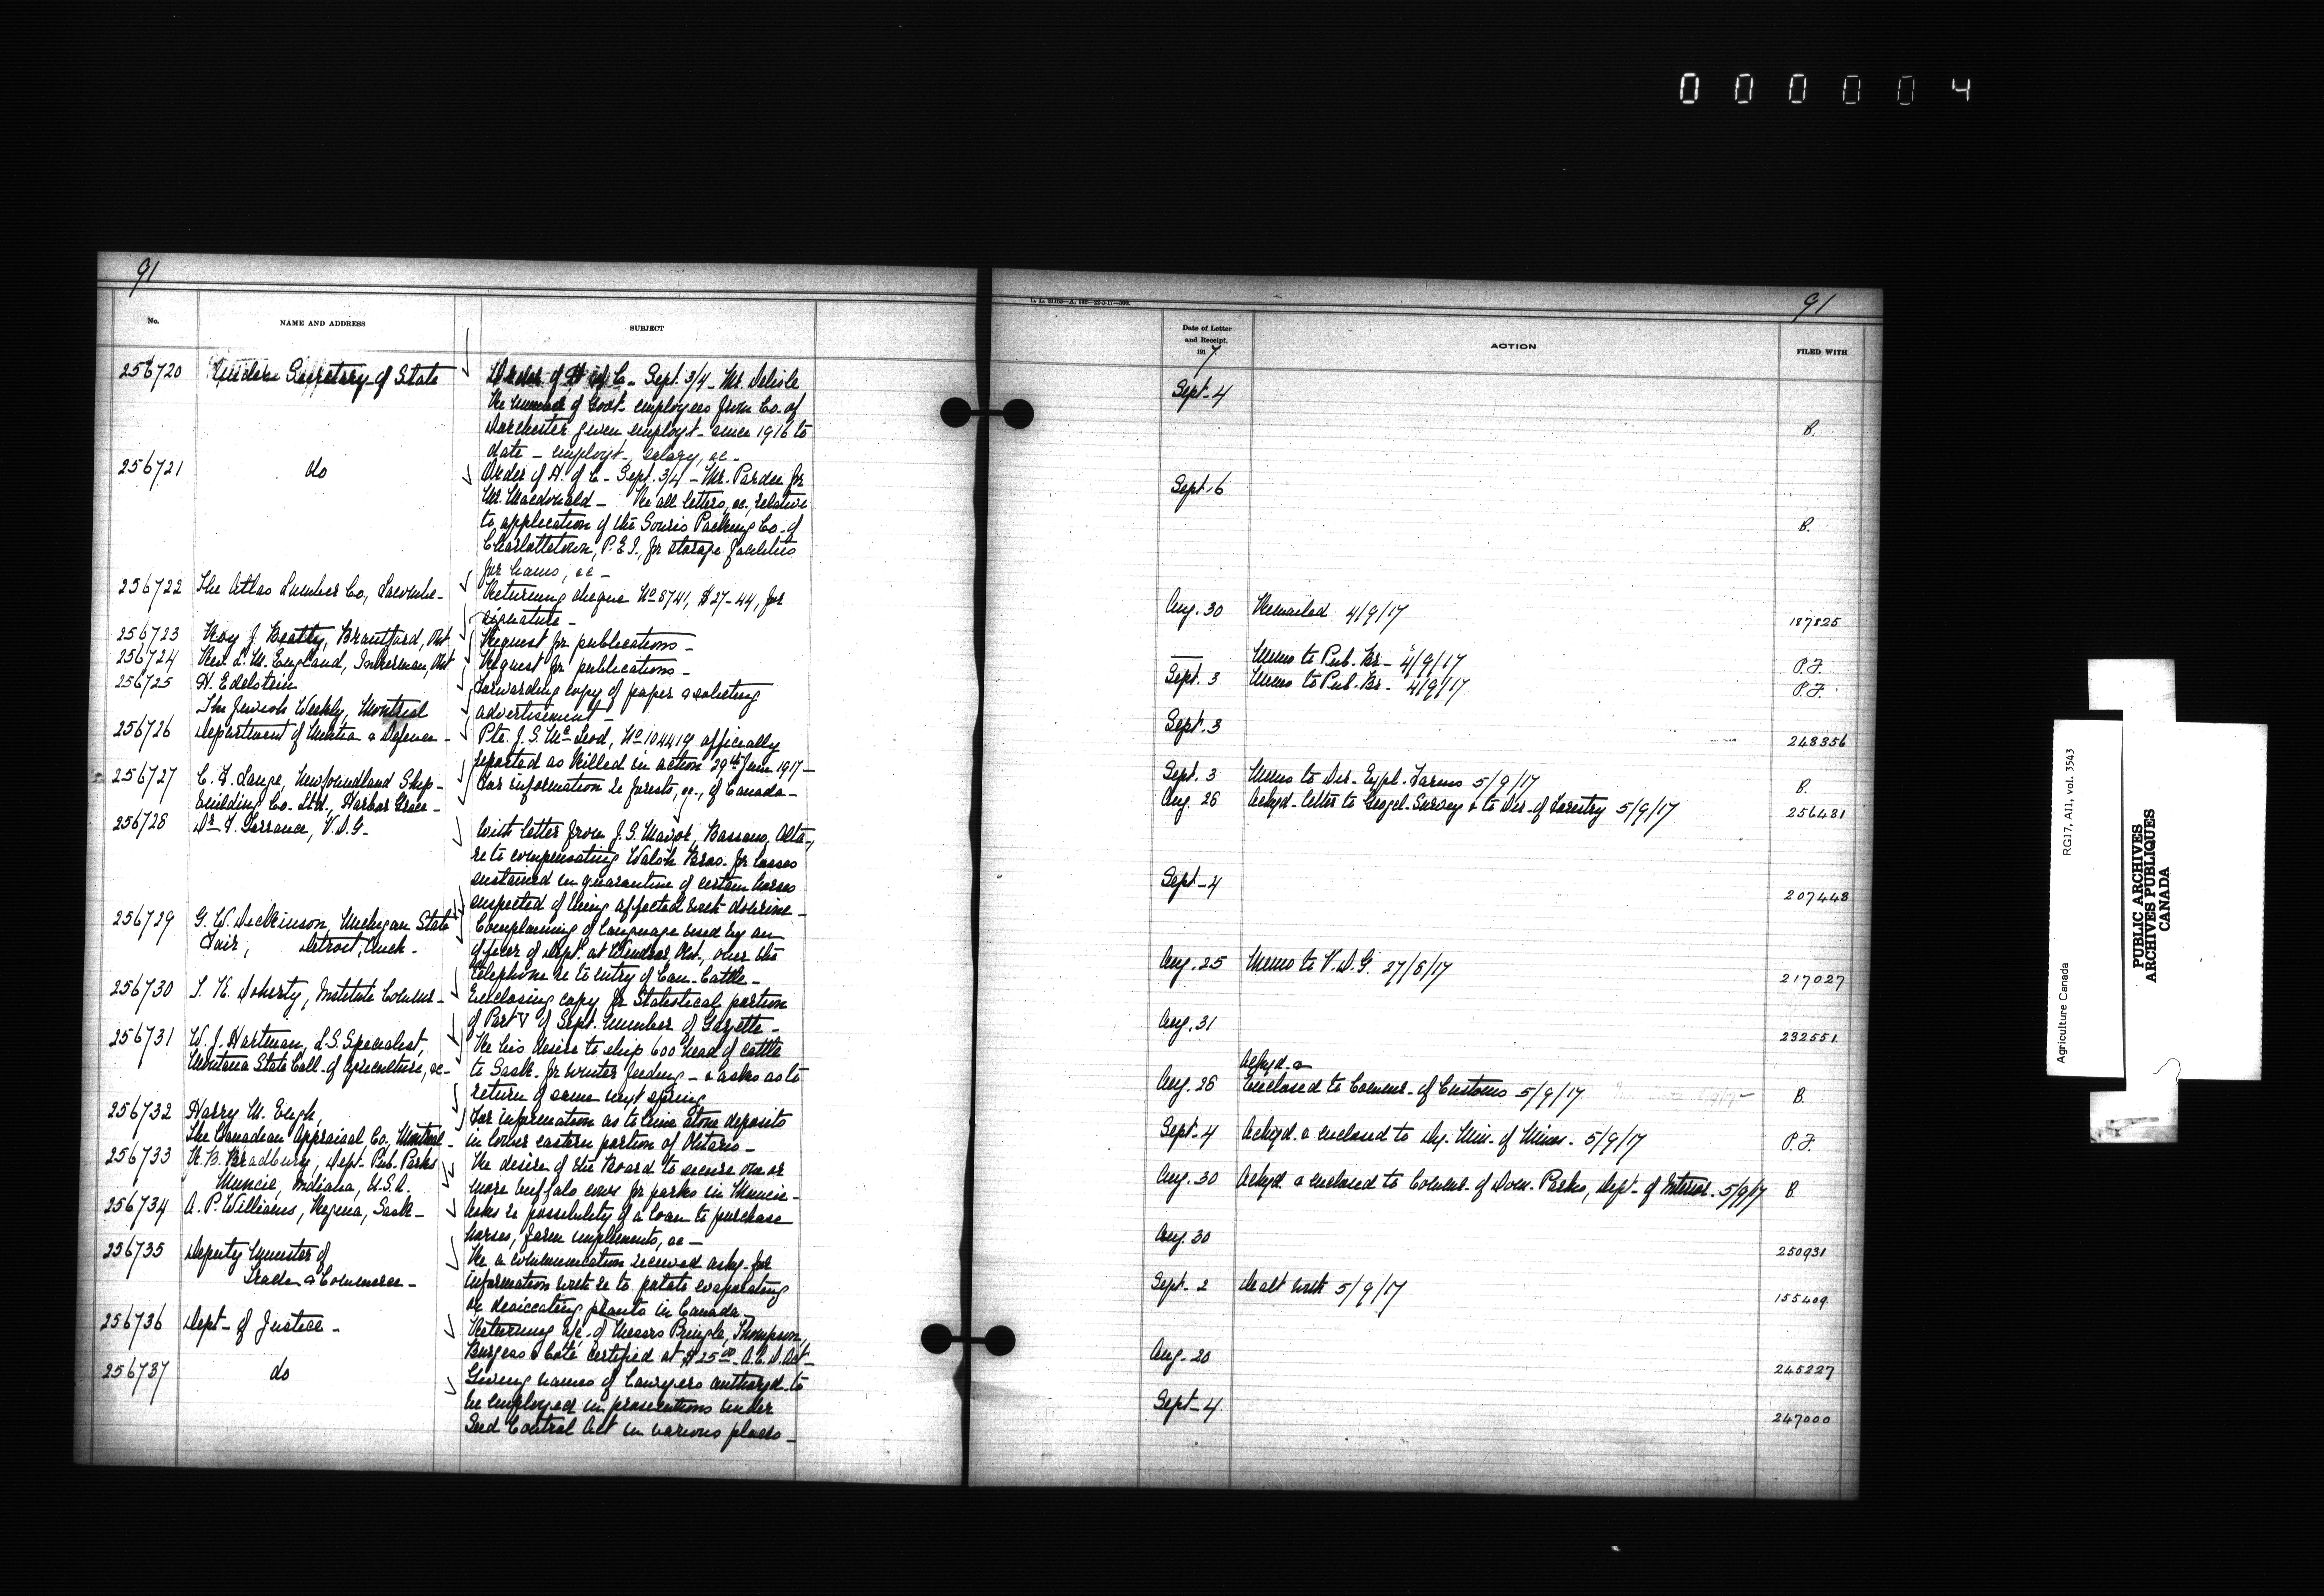 000004
91
No.
NAME AND ADDRESS
SUBJECT
256720 Under Secretary of State
Order of H of C. Sept. 3/4 - Mr. Delisle
Re number of Govt. employees from Co. of
Dorchester given employt. since 1916 to
date - employt., salary, &c -
256721 do
Order of H. of C - Sept. 3/4 - Mr. Pardee for
Mr. Macdonald - Re all letters, &c. relative
to application of the Souris Packing Co. of
Charlottetown, P.E.I., for storage facilities
for hams, &c -
256722 The Atlas Lumber Co, Lacombe -
Returning cheque No 8741, $27-44, for
signature -
256723 Roy J. Beatty, Brantford, Ont.
Request for publications -
256724 Rev. L. M. England, Inkerman, Ont
Request for publications -
256725 H. Edelstein
The Jewish Weekly, Montreal
Forwarding copy of paper & soliciting
advertisement -
256726 Department of Militia & Defence -
Pte. J. S. McLeod, No 104419 officially
reported as killed in action 29th June 1917 -
256727 C. F. Lange, Newfoundland Ship-
building Co. Ltd., Harbor Grace -
For information re forests, &c., of Canada -
256728 Dr F. Torrance, V.D.G.
With letter from J. S. Mavor, Bassano, Alta.,
re to compensating Walsh Bros. for losses
sustained in quarantine of certain horses
suspected of being affected with dourine -
256729 G. W. Dickinson, Michigan State
Fair, Detroit, Mich.
Complaining of language used by an
officer of Dept. at Windsor, Ont., over the
telephone re to entry of Can. Cattle -
256730 T. K. Doherty, Institute Commr -
Enclosing copy for Statistical portion
of Part V of Sept. Number of Gazette -
256731 W. J. Hartman, L.S. Specialist,
Montana State Coll. of Agriculture, &c -
Re his desire to ship 600 head of cattle
to Sask. for winter feeding - & asks as to
return of same next spring
256732 Harry M. Eugh,
The Canadian Appraisal Co., Montreal -
For information as to lime stone deposits
in lower eastern portion of Ontario -
256733 H. B. Bradbury, Dept. Pub. Parks
Muncie, Indiana, U.S.A.
Re desire of the Board to secure one or
more buffalo cows for parks in Muncie -
256734 A. P. Williams, Regina, Sask -
Asks re possibility of a loan to purchase
horses, farm implements, &c -
256735 Deputy Minister of
Trade & Commerce -
Re a communication received askg. for
information with re to potato evaporating
or desiccating plants in Canada
256736 Dept - of Justice -
Returning a/c. of Messrs Pringle, Thompson,
Burgess & Coté certified at $25.00 - A.C.D. Act -
256737 do
Giving names of lawyers authorzd. to
be employed in prosecutions under
Seed Control Act in various places -
91
Date of Letter
and Receipt,
1917
ACTION
FILED WITH
Sept - 4 B.
Sept. 6 B.
Aug. 30 Remailed 4/9/17 187825
— Memo to Pub. Br - 4/9/17 P.F.
Sept. 3 Memo to Pub. Br - 4/9/17 P.F.
Sept. 3 248356
Sept. 3 Memo to Dir. Expl. Farms 5/9/17 B.
Aug. 26 Ackgd - letter to Geogcl. Survey & to Dir - of Forestry 5/9/17 256481
Sept - 4 207448
Aug. 25 Memo to V.D.G. 27/8/17 217027
Aug. 31 232551
Ackgd. &
Aug. 26 Enclosed to Commr. of Customs 5/9/17 B.
Sept - 4 Ackgd. & enclosed to Dy. Min. of Mines - 5/9/17 P.F.
Aug. 30 Ackgd. & enclosed to Commr. of Dom. Parks, Dept - of Interior. 5/9/17 B.
Aug. 30 250931
Sept - 2 Dealt with 5/9/17 155409
Aug - 20 245227
Sept - 4 247000
Agriculture Canada RG17, AII, vol. 3543
PUBLIC ARCHIVES
ARCHIVES PUBLIQUES
CANADA